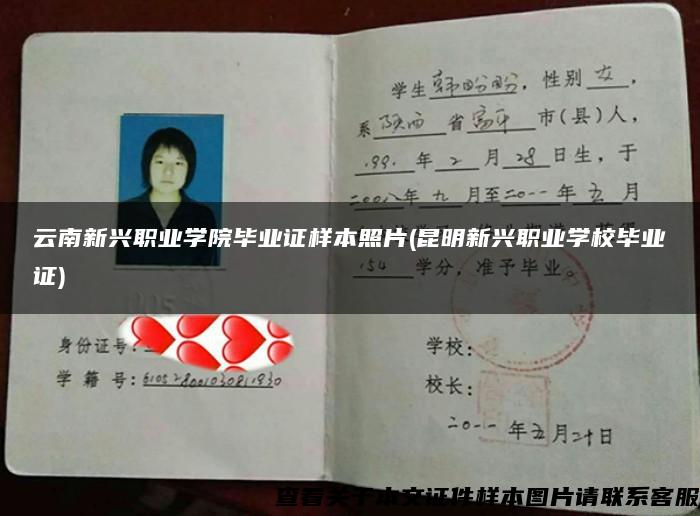 学生韩盼盼，性别女，
系陕西省富平市(县)人，
1991年2月28日生，于
二00八年九月至二0一一年五月
云南新兴职业学院毕业证样本照片(昆明新兴职业学校毕业
证)
154学分，准予毕业。
身份证号：
学籍号：
学校：
校长：
二0一一年五月二十日
查看关于本文证件样本图片请联系客服